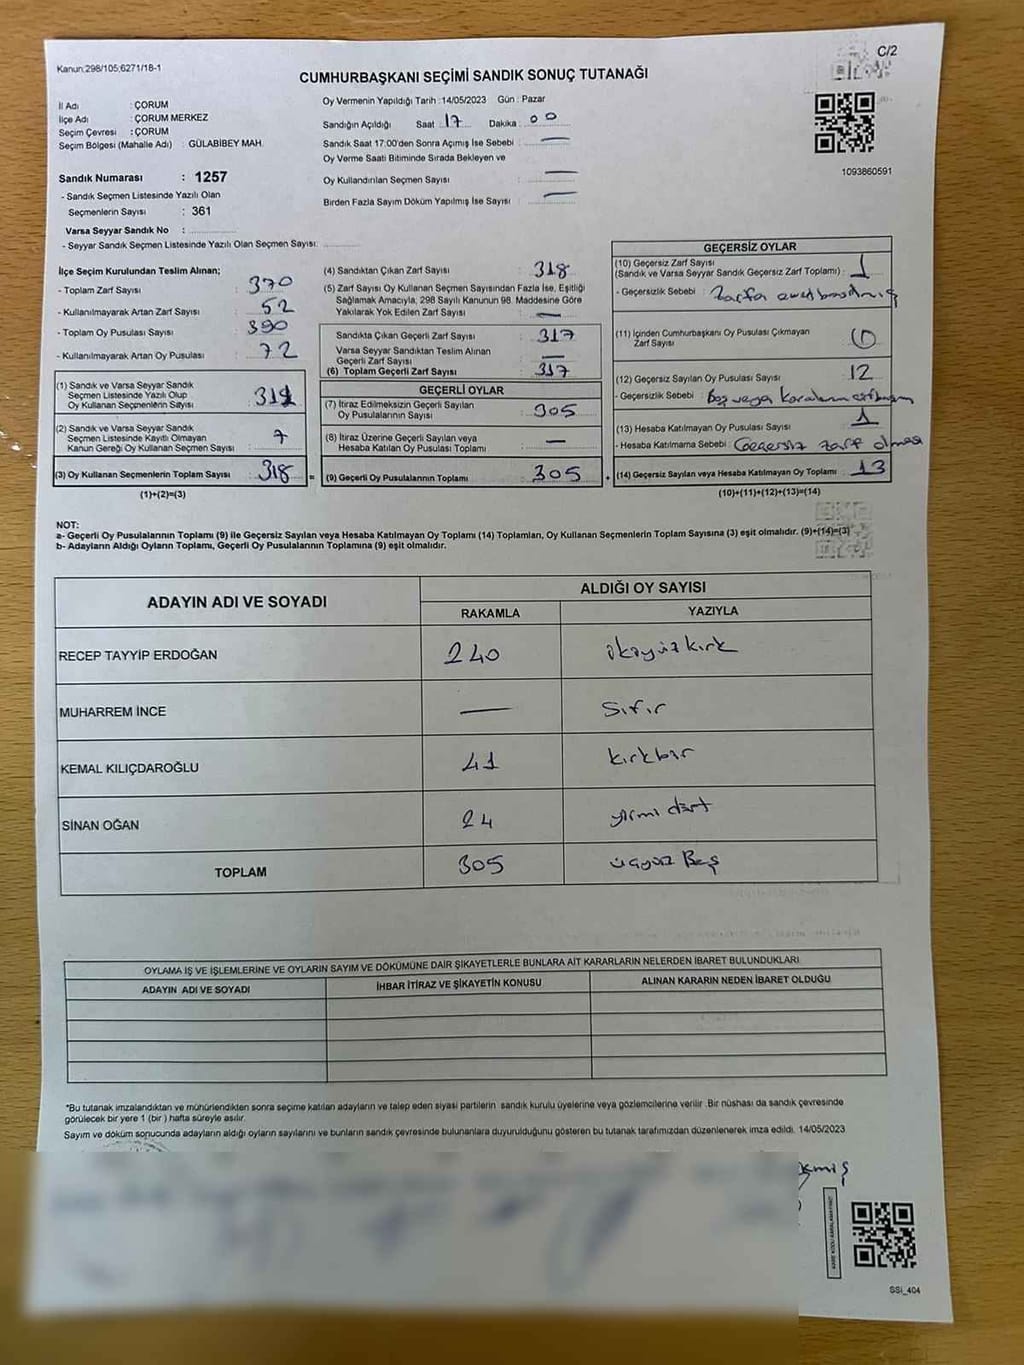 Kanun:298/105;6271/18-1
C/2
CUMHURBAŞKANI SEÇİMİ SANDIK SONUÇ TUTANAĞI
İl Adı : ÇORUM
İlçe Adı : ÇORUM MERKEZ
Seçim Çevresi : ÇORUM
Seçim Bölgesi (Mahalle Adı) : GÜLABİBEY MAH.
Sandık Numarası : 1257
- Sandık Seçmen Listesinde Yazılı Olan
Seçmenlerin Sayısı : 361
Varsa Seyyar Sandık No :
- Seyyar Sandık Seçmen Listesinde Yazılı Olan Seçmen Sayısı:
Oy Vermenin Yapıldığı Tarih :14/05/2023 Gün : Pazar
Sandığın Açıldığı Saat 17 Dakika : 00
Sandık Saat 17:00'den Sonra Açımış İse Sebebi : —
Oy Verme Saati Bitiminde Sırada Bekleyen ve
Oy Kullandırılan Seçmen Sayısı —
Birden Fazla Sayım Döküm Yapılmış İse Sayısı : —
1093860591
İlçe Seçim Kurulundan Teslim Alınan;
- Toplam Zarf Sayısı : 370
- Kullanılmayarak Artan Zarf Sayısı : 52
- Toplam Oy Pusulası Sayısı : 390
- Kullanılmayarak Artan Oy Pusulası : 72
(1) Sandık ve Varsa Seyyar Sandık
Seçmen Listesinde Yazılı Olup
Oy Kullanan Seçmenlerin Sayısı : 311
(2) Sandık ve Varsa Seyyar Sandık
Seçmen Listesinde Kayıtlı Olmayan
Kanun Gereği Oy Kullanan Seçmen Sayısı : 7
(3) Oy Kullanan Seçmenlerin Toplam Sayısı : 318 =
(1)+(2)=(3)
(4) Sandıktan Çıkan Zarf Sayısı : 318
(5) Zarf Sayısı Oy Kullanan Seçmen Sayısından Fazla İse, Eşitliği
Sağlamak Amacıyla, 298 Sayılı Kanunun 98. Maddesine Göre
Yakılarak Yok Edilen Zarf Sayısı : —
Sandıkta Çıkan Geçerli Zarf Sayısı : 317
Varsa Seyyar Sandıktan Teslim Alınan
Geçerli Zarf Sayısı : —
(6) Toplam Geçerli Zarf Sayısı : 317
GEÇERLİ OYLAR
(7) İtiraz Edilmeksizin Geçerli Sayılan
Oy Pusulalarının Sayısı : 305
(8) İtiraz Üzerine Geçerli Sayılan veya
Hesaba Katılan Oy Pusulası Toplamı : —
(9) Geçerli Oy Pusulalarının Toplamı : 305 +
GEÇERSİZ OYLAR
(10) Geçersiz Zarf Sayısı
(Sandık ve Varsa Seyyar Sandık Geçersiz Zarf Toplamı) : 1
- Geçersizlik Sebebi : Zarfa evet basılmış
(11) İçinden Cumhurbaşkanı Oy Pusulası Çıkmayan
Zarf Sayısı : 0
(12) Geçersiz Sayılan Oy Pusulası Sayısı : 12
- Geçersizlik Sebebi : Boş veya
(13) Hesaba Katılmayan Oy Pusulası Sayısı : 1
- Hesaba Katılmama Sebebi : Geçersiz zarf olması
(14) Geçersiz Sayılan veya Hesaba Katılmayan Oy Toplamı : 13
(10)+(11)+(12)+(13)=(14)
NOT:
a- Geçerli Oy Pusulalarının Toplamı (9) ile Geçersiz Sayılan veya Hesaba Katılmayan Oy Toplamı (14) Toplamları, Oy Kullanan Seçmenlerin Toplam Sayısına (3) eşit olmalıdır. (9)+(14)=(3)
b- Adayların Aldığı Oyların Toplamı, Geçerli Oy Pusulalarının Toplamına (9) eşit olmalıdır.
ADAYIN ADI VE SOYADI
ALDIĞI OY SAYISI
RAKAMLA YAZIYLA
RECEP TAYYİP ERDOĞAN 240 ikiyüzkırk
MUHARREM İNCE — Sıfır
KEMAL KILIÇDAROĞLU 41 kırkbir
SİNAN OĞAN 24 yirmi dört
TOPLAM 305 üçyüz Beş
OYLAMA İŞ VE İŞLEMLERİNE VE OYLARIN SAYIM VE DÖKÜMÜNE DAİR ŞİKAYETLERLE BUNLARA AİT KARARLARIN NELERDEN İBARET BULUNDUKLARI
ADAYIN ADI VE SOYADI İHBAR İTİRAZ VE ŞİKAYETİN KONUSU ALINAN KARARIN NEDEN İBARET OLDUĞU
*Bu tutanak imzalandıktan ve mühürlendikten sonra seçime katılan adayların ve talep eden siyasi partilerin sandık kurulu üyelerine veya gözlemcilerine verilir .Bir nüshası da sandık çevresinde
görülecek bir yere 1 (bir ) hafta süreyle asılır.
Sayım ve döküm sonucunda adayların aldığı oyların sayılarını ve bunların sandık çevresinde bulunanlara duyurulduğunu gösteren bu tutanak tarafımızdan düzenlenerek imza edildi. 14/05/2023
SSİ_404